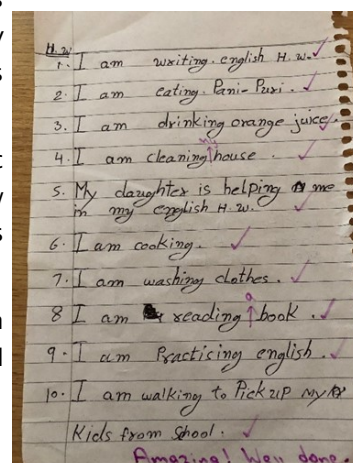 H.W
1. I am writing english H.W.
2. I am eating Pani-Puri.
3. I am drinking orange juice.
my
4. I am cleaning house.
5. My daughter is helping me
in my english H.W.
6. I am cooking.
7. I am washing clothes.
a
8 I am reading book.
9. I am Practising english.
10. I am walking to Pick up My
Kids from School.
Amazing! Well done.